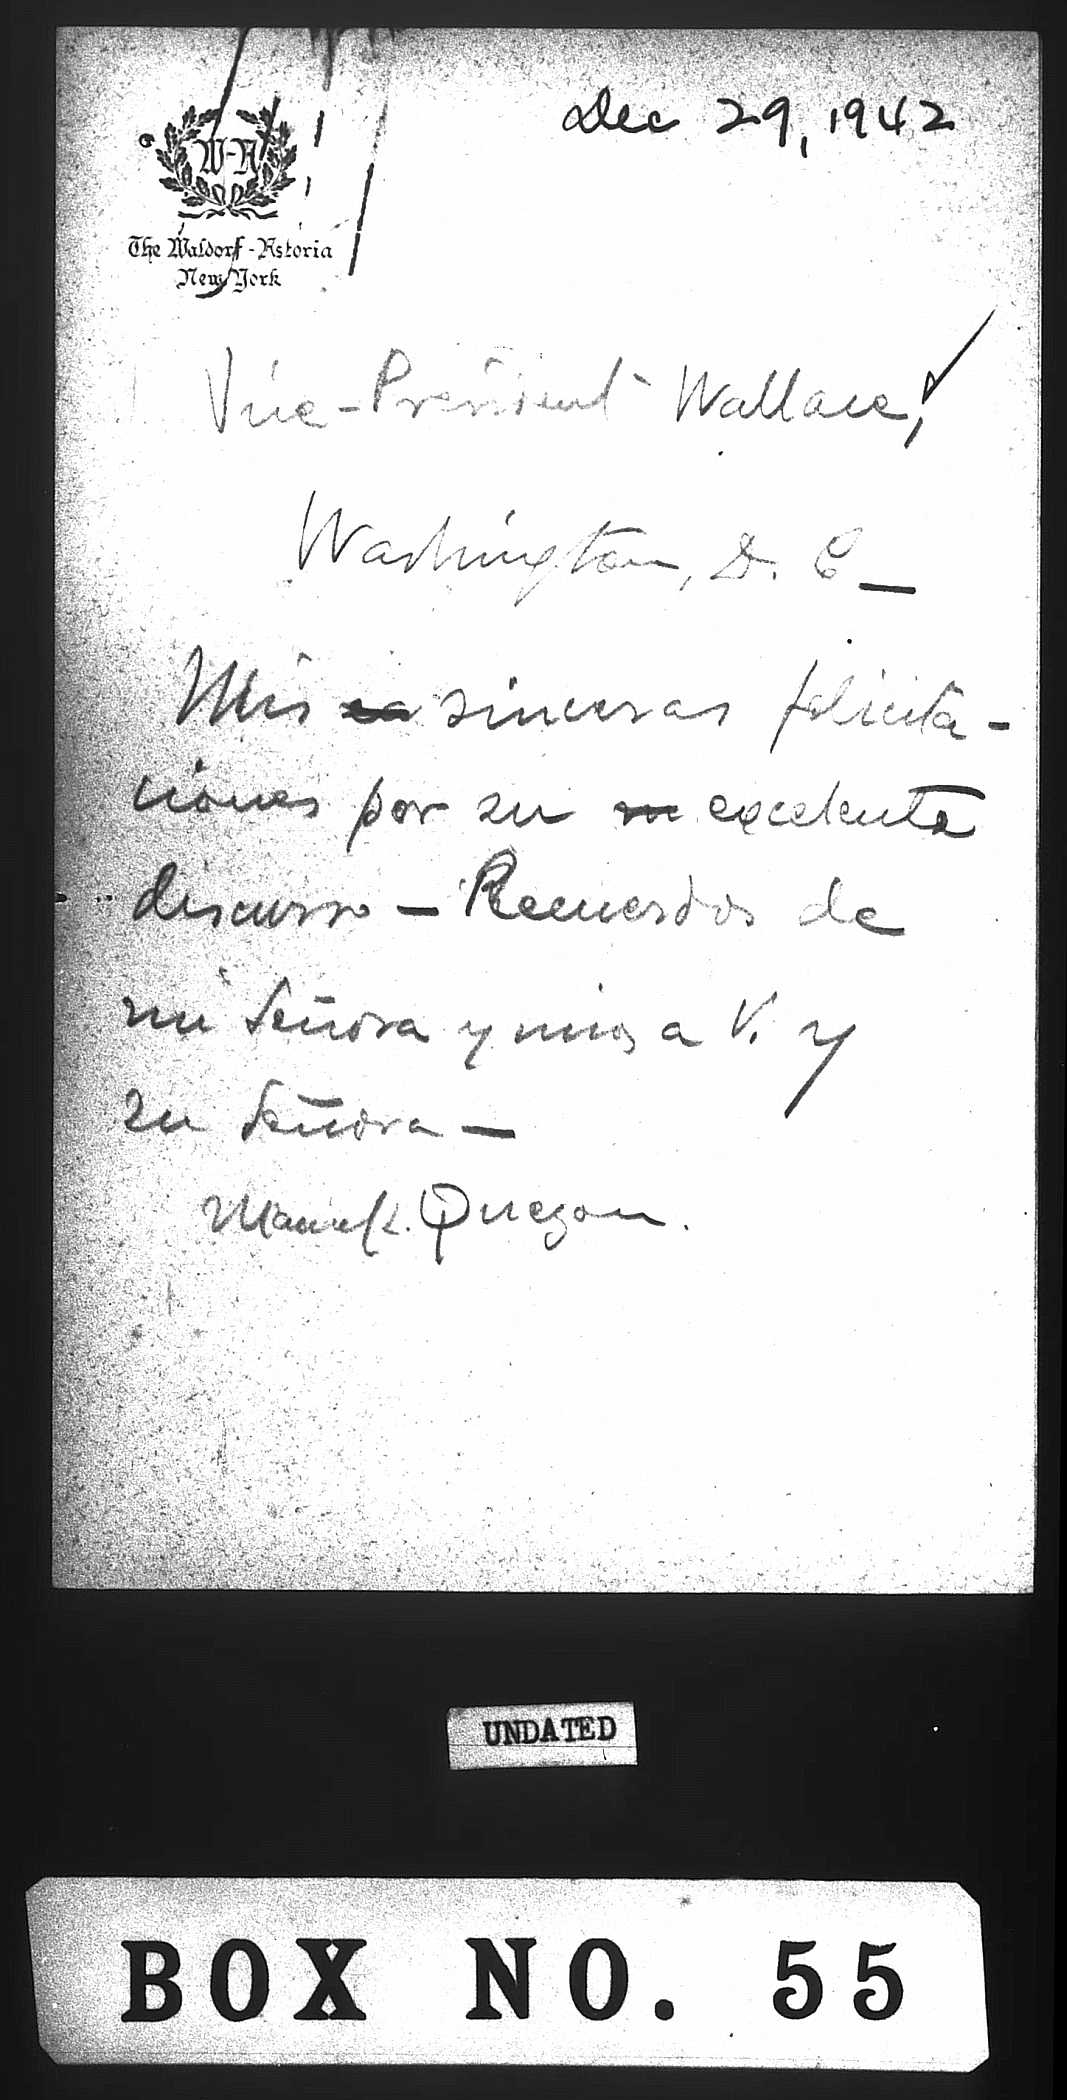 Dec 29, 1942
W-A
The Waldorf-Astoria
New York
Vice-President Wallace,
Washington, D. C—
Mis sinceras felicita-
ciones por su excelente
discurso — Recuerdos de
mi Señora y mios a V. y
su Señora —
Manuel L. Quezon.
UNDATED
BOX NO. 55